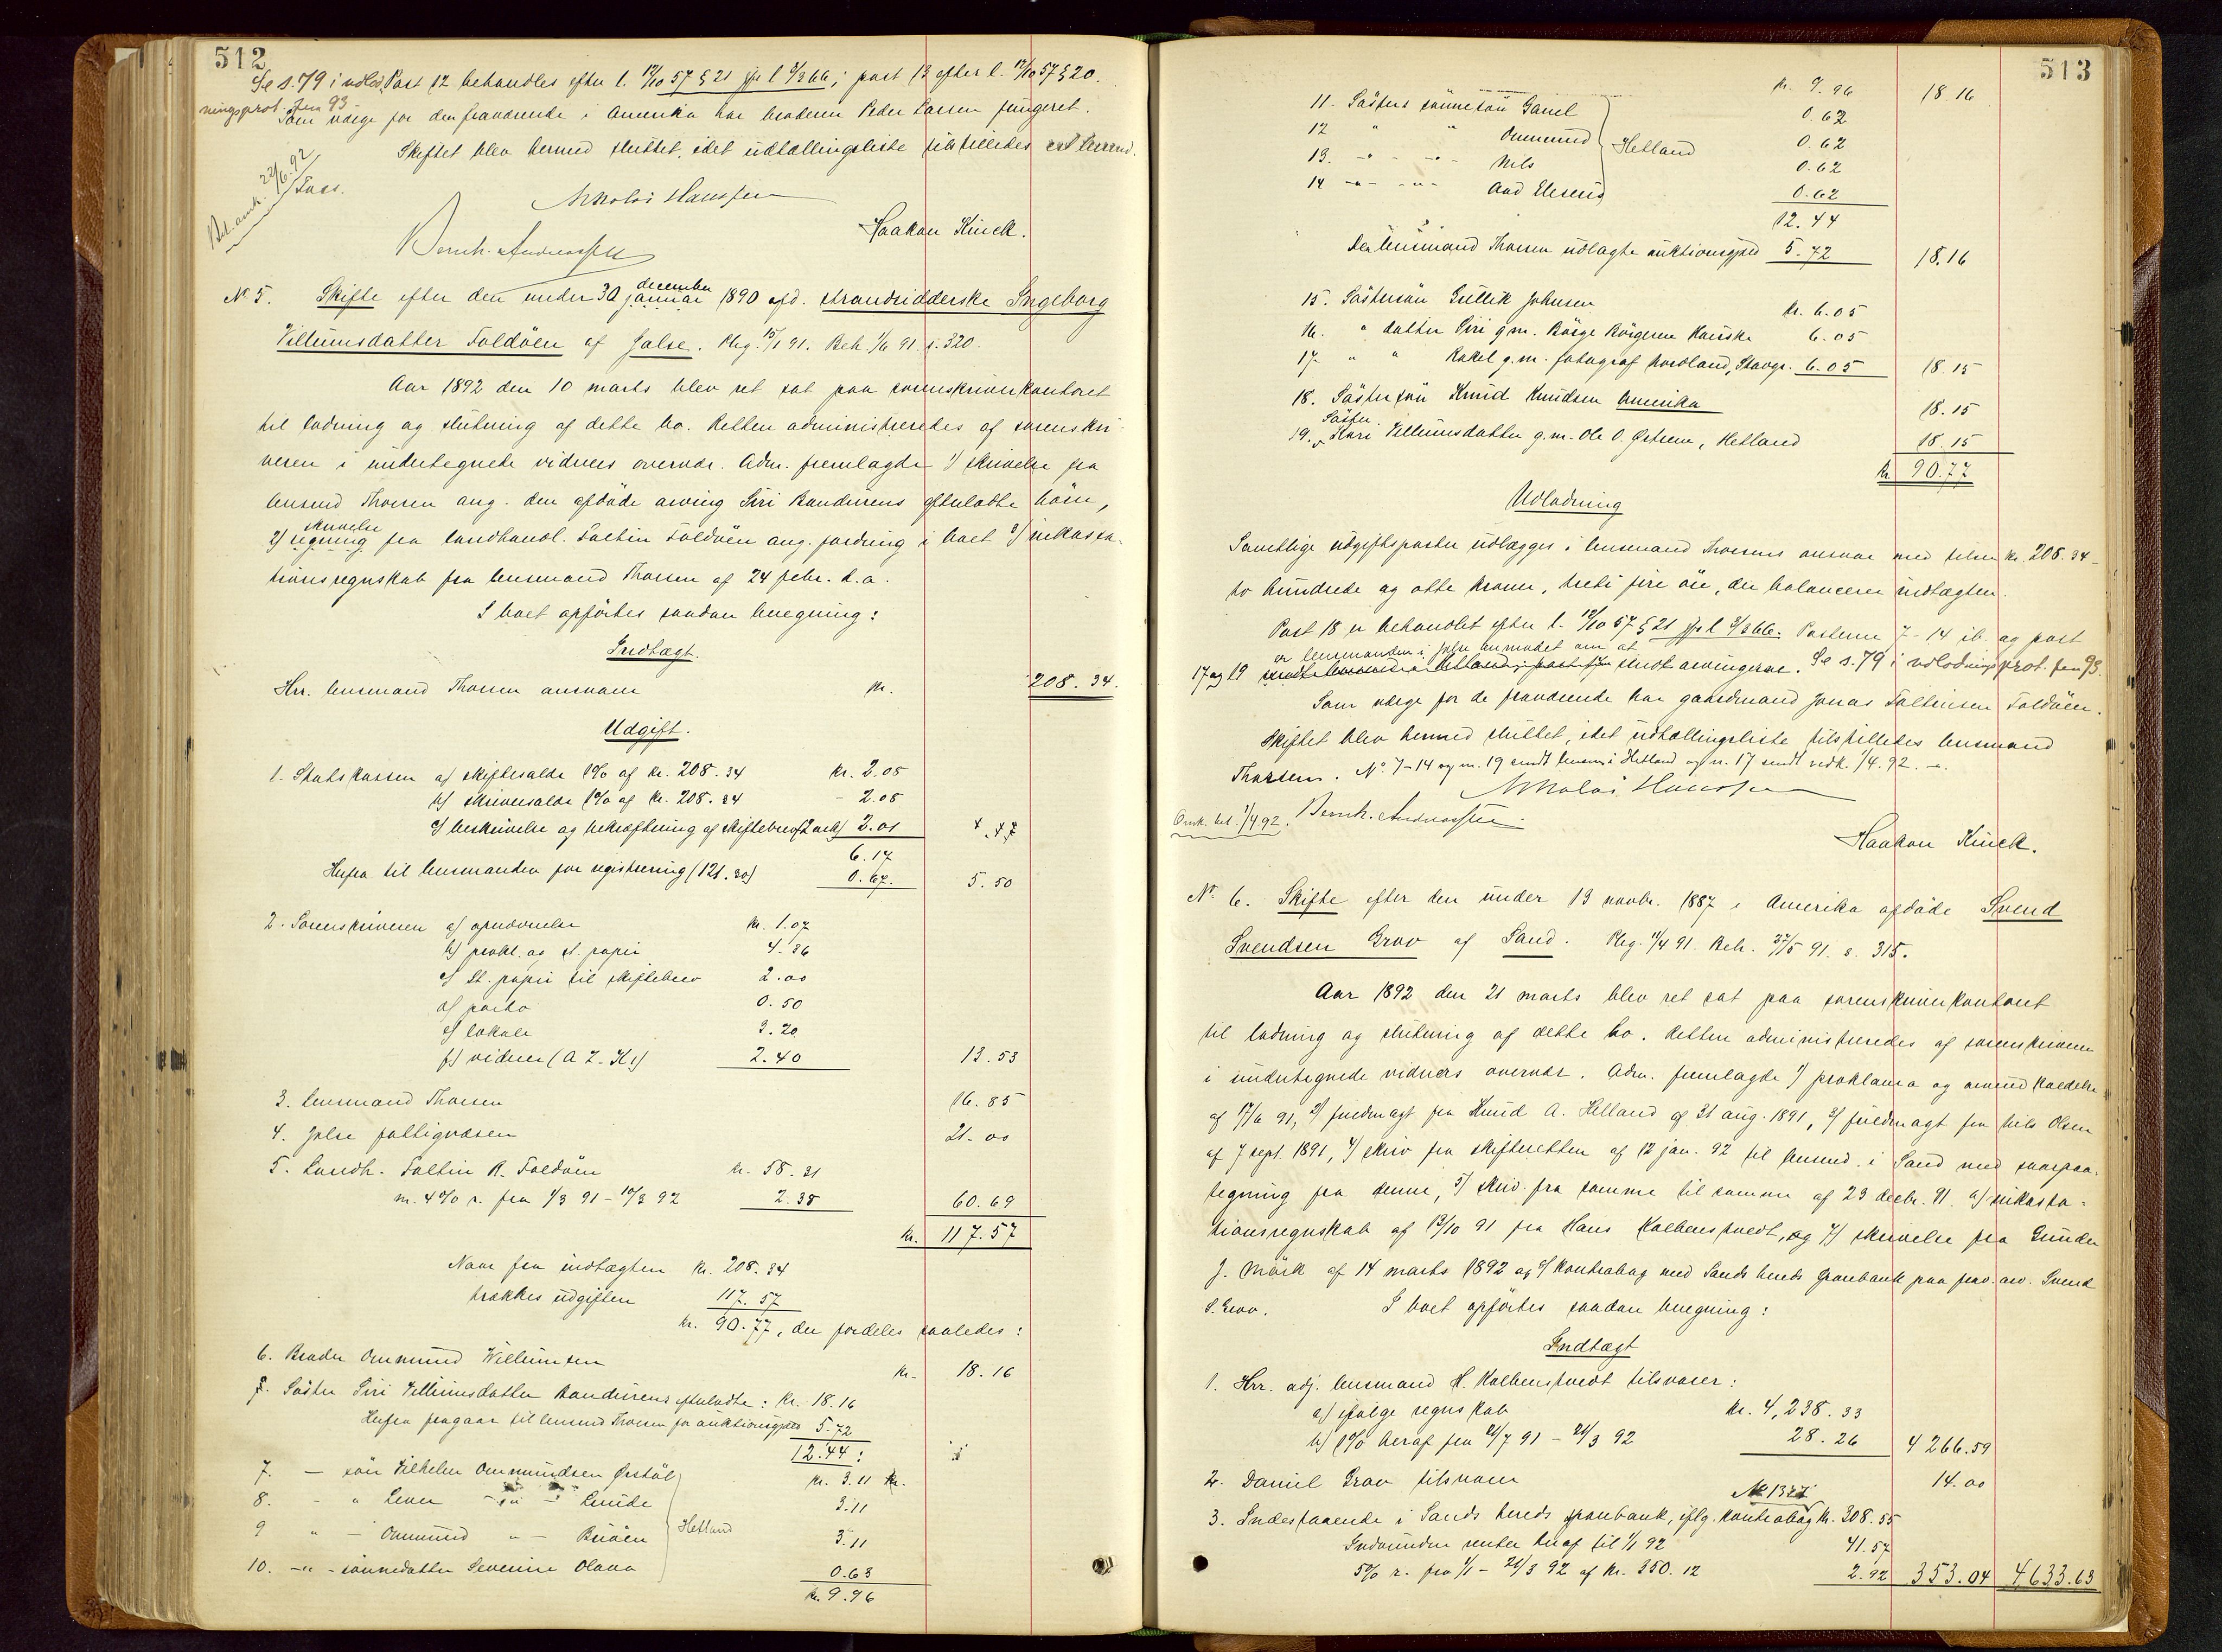 512
Se s. 79 i udlod- Post 12 behandles efter l. 12/10 57 § 21 jfr l 3/3 66; post 13 efter l. 12/10 57 § 20.
ningsprot. fra 93
Som værge for den fraværende i Amerika har broderen Peder Larsen fungeret.
Skiftet blev hermed sluttet, idet udtællingsliste tilstilledes
22/6.92
Nikolai Hanssen
Haakon Kinck.
Bernh. Andreassen
No 5. Skifte efter den under 30 december januar 1890 afd. strandsidderske Ingeborg
Villumsdatter Foldöen af Jelse. Reg. 15/1 91. Beh. 1/6 91 s. 320.
Aar 1892 den 10 marts blev ret sat paa sorenskriverkontoret
til lodning og slutning af dette bo. Retten administreredes af sorenskri-
veren i undertegnede vidners overvær. Adm. fremlagde 1) skrivelse fra
lensmd Thorsen ang. den afdöde arving Siri Bandurens efterladte börn,
2) skrivelse regning fra landhandl. Foltin Foldöen ang. fordring i boet 3) inkassa-
tionsregnskab fra lensmand Thorsen af 24 febr. d.a.
I boet opförtes saadan beregning:
Indtægt.
Hrr. lensmand Thorsen ansvarer kr. 208.34.
Udgift.
1. Statskassen a) skiftesalde 1% af kr. 208.34 kr. 2.08
b) skriversalde 1% af kr. 208.34 - 2.08
c) beskrivelse og bekræftning af skiftebrev (2 ark) 2.01
6.17
Herfra til lensmanden for registrering (121.30) 0.67. 5.50
2. Sorenskriveren a) opnævnelse kr. 1.07
b) prokl. og st. papir 4.36
c) St. papir til skiftebrev 2.00
d) porto 0.50
e) lokale 3.20
f) vidner (A Z. K s) 2.40 13.53
3. lensmand Thorsen 16.85
4. Jelse fattigvæsen 21.00
5. Landh. Foltin R. Foldöen kr. 58.31
m. 4% r. fra 1/3 91 - 10/3 92 2.38 60.69
kr. 117.57
Naar fra indtægten kr. 208.34
trækkes udgiften 117.57
kr. 90.77, der fordeles saaledes:
6. Broder Ommund Villumsen kr. 18.16
Söster Siri Villumsdatter Bandurens efterladte: kr. 18.16
Herfra fragaar til lensmd Thorsen for auktionsgjæld 5.72
12.44:
7. — sön Vilhelm Ommundsen kr. 3.11 kr.
8. - " 3.11
9 " — Ommund " — Hetland 3.11
10. -"- sönnedatter Severine Olava 0.63
kr. 9.96
513
kr. 9.96 18.16
11. Sösters sönnesön Gabriel 0.62
12 " " Ommund Hetland 0.62
13. -"- -"- Nils 0.62
14 -"- -"- 0.62
12.44
Den lensmand Thorsen udlagte auktionsgjæld 5.72 18.16
15. Söstersön Gullik Johnsen kr. 6.05
16. " datter Siri gm. Börge Börgesen 6.05
17. " " Rakel g.m. fotograf Nordland, Stavgr. 6.05 18.15
18. Söstersön Knud Knudsen Amerika 18.15
19. Söster Kari Villumsdatter g.m. Ole O. Östrem, Hetland 18.15
kr 90.77
Udlodning
Samtlige udgiftsposter udlægges i lensmand Thorsens ansvar med tilsm kr. 208.34 -
to hundrede og otte kroner, treti fire öre, der balancerer indtægten.
Post 18 er behandlet efter l. 12/10 57 § 21 jfr l 3/3 66. Posterne 7-14 ib. og post
er lensmanden i Jelse anmodet om at
17 og 19 sendt arvingerne. Se s. 79 i udlodningsprot. fra 93.
Som værge for de fraværende har gaardmand Jonas Foltinsen Foldöen.
Skiftet blev hermed sluttet, idet udtællingsliste tilstilledes lensmand
Thorsen. No 7-14 og n. 19 sendt lensm. i Hetland og n. 17 sendt vedk. 1/4.92. -.
Nikolai Hanssen
Omk. bet. 1/4 92. Bernh. Andreassen
Haakon Kinck.
No 6. Skifte efter den under 13 novbr. 1887 i Amerika afdöde Svend
Svendsen Grov af Sand. Reg. 11/4 91. Beh. 27/5 91. s. 315.
Aar 1892 den 21 marts blev ret sat paa sorenskriverkontoret
til lodning og slutning af dette bo. Retten administreredes af sorenskriveren
i undertegnede vidners overvær. Adm. fremlagde 1) proklama og arveindkaldelse
af 17/6 91, 2) fuldmagt fra Knud A. Helland af 31 aug. 1891, 3) fuldmagt fra Nils Olsen
af 7 sept. 1891, 4) skriv fra skifteretten af 12 jan. 92 til lensmd. i Sand med svarpaa-
tegning fra denne, 5) skriv. fra samme til samme af 23 decbr. 91. 6) inkassa-
tionsregnskab af 13/10 91 fra Hans Kolbenstvedt, og 7) skrivelse fra Gunder
J. Mörk af 14 marts 1892 og 8) kontrabog med Sands herreds sparebank paa frav. arv. Svend
S. Grov. I boet opförtes saadan beregning:
Indtægt
1. Hrr. adj. lensmand H. Kolbenstvedt tilsvarer:
a) ifölge regnskab kr. 4,238.33
b) 1% heraf fra 21/7 91 - 21/3 92 28.26 4 266.59
2. Daniel Grov tilsvarer 14.00
No 1321
3. Indestaaende i Sands herreds sparebank, iflg. kontrabog kr. 308.55
Indvundne renter heraf til 1/1 92 41.57
5% r. fra 1/1 - 21/3 92 af kr. 350.12 2.92 353.04 4633.63